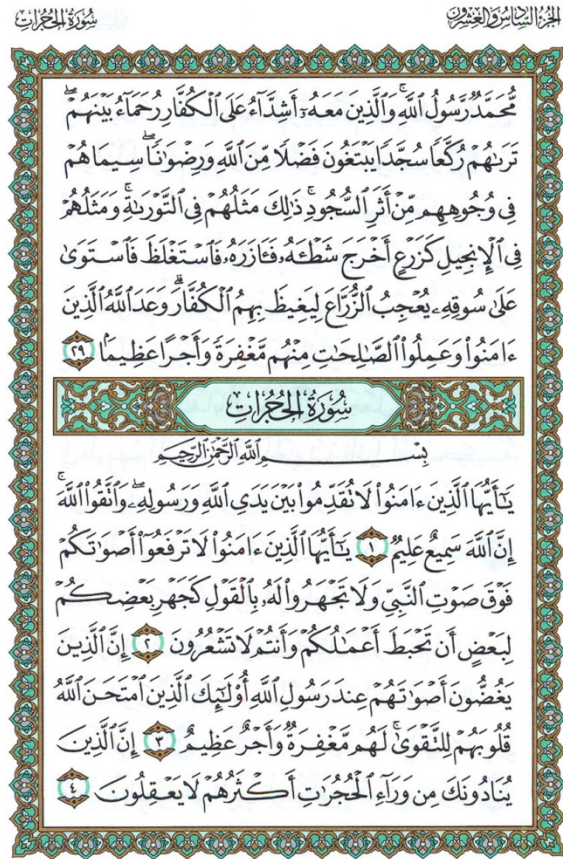 الجزء السادس والعشرون
سورة الحجرات
مُّحَمَّدٌ رَّسُولُ ٱللَّهِۚ وَٱلَّذِينَ مَعَهُۥٓ أَشِدَّآءُ عَلَى ٱلْكُفَّارِ رُحَمَآءُ بَيْنَهُمْۖ
تَرَىٰهُمْ رُكَّعًا سُجَّدًا يَبْتَغُونَ فَضْلًا مِّنَ ٱللَّهِ وَرِضْوَٰنًاۖ سِيمَاهُمْ
فِى وُجُوهِهِم مِّنْ أَثَرِ ٱلسُّجُودِۚ ذَٰلِكَ مَثَلُهُمْ فِى ٱلتَّوْرَىٰةِۚ وَمَثَلُهُمْ
فِى ٱلْإِنجِيلِ كَزَرْعٍ أَخْرَجَ شَطْـَٔهُۥ فَـَٔازَرَهُۥ فَٱسْتَغْلَظَ فَٱسْتَوَىٰ
عَلَىٰ سُوقِهِۦ يُعْجِبُ ٱلزُّرَّاعَ لِيَغِيظَ بِهِمُ ٱلْكُفَّارَۗ وَعَدَ ٱللَّهُ ٱلَّذِينَ
ءَامَنُوا۟ وَعَمِلُوا۟ ٱلصَّٰلِحَٰتِ مِنْهُم مَّغْفِرَةً وَأَجْرًا عَظِيمًۢا ٢٩
سُورَةُ الحُجُرَاتِ
بِسْمِ ٱللَّهِ ٱلرَّحْمَٰنِ ٱلرَّحِيمِ
يَٰٓأَيُّهَا ٱلَّذِينَ ءَامَنُوا۟ لَا تُقَدِّمُوا۟ بَيْنَ يَدَىِ ٱللَّهِ وَرَسُولِهِۦۖ وَٱتَّقُوا۟ ٱللَّهَۚ
إِنَّ ٱللَّهَ سَمِيعٌ عَلِيمٌ ١ يَٰٓأَيُّهَا ٱلَّذِينَ ءَامَنُوا۟ لَا تَرْفَعُوٓا۟ أَصْوَٰتَكُمْ
فَوْقَ صَوْتِ ٱلنَّبِىِّ وَلَا تَجْهَرُوا۟ لَهُۥ بِٱلْقَوْلِ كَجَهْرِ بَعْضِكُمْ
لِبَعْضٍ أَن تَحْبَطَ أَعْمَٰلُكُمْ وَأَنتُمْ لَا تَشْعُرُونَ ٢ إِنَّ ٱلَّذِينَ
يَغُضُّونَ أَصْوَٰتَهُمْ عِندَ رَسُولِ ٱللَّهِ أُو۟لَٰٓئِكَ ٱلَّذِينَ ٱمْتَحَنَ ٱللَّهُ
قُلُوبَهُمْ لِلتَّقْوَىٰۚ لَهُم مَّغْفِرَةٌ وَأَجْرٌ عَظِيمٌ ٣ إِنَّ ٱلَّذِينَ
يُنَادُونَكَ مِن وَرَآءِ ٱلْحُجُرَٰتِ أَكْثَرُهُمْ لَا يَعْقِلُونَ ٤